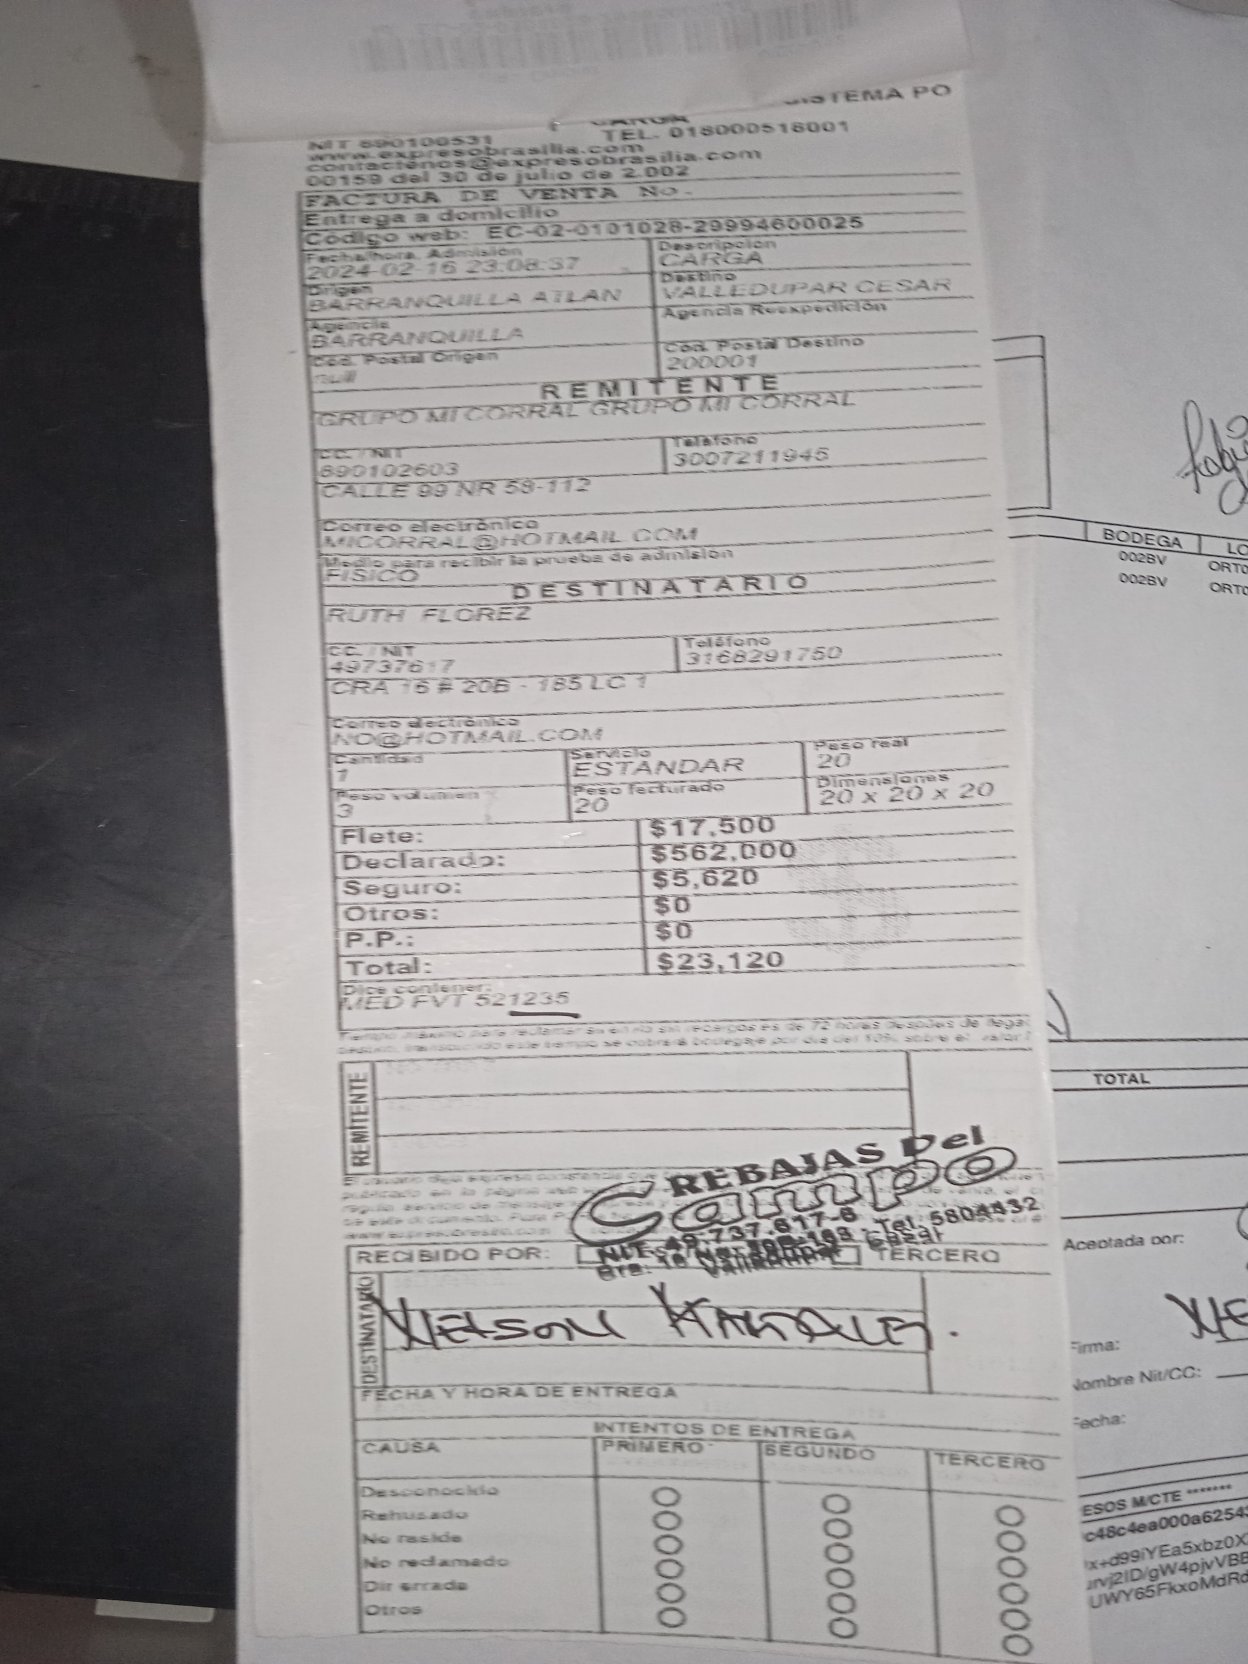 SISTEMA PO
CARGA
NIT 890100531 TEL. 018000518001
www.expresobrasilia.com
contactenos@expresobrasilia.com
00159 del 30 de julio de 2.002
FACTURA DE VENTA No.
Entrega a domicilio
Código web: EC-02-0101028-29994600025
Fecha/hora. Admisión Descripción
2024-02-16 23:08:37 CARGA
Origen Destino
BARRANQUILLA ATLAN VALLEDUPAR CESAR
Agencia Agencia Reexpedición
BARRANQUILLA
Cod. Postal Origen Cod. Postal Destino
null 200001
REMITENTE
GRUPO MI CORRAL GRUPO MI CORRAL
CC. / NIT Teléfono
890102603 3007211945
CALLE 99 NR 59-112
Correo electrónico
MICORRAL@HOTMAIL.COM
Medio para recibir la prueba de admisión
FISICO
DESTINATARIO
RUTH FLOREZ
CC. / NIT Teléfono
49737617 3168291750
CRA 16 # 20B - 185 LC 1
Correo electrónico
NO@HOTMAIL.COM
Cantidad Servicio Peso real
1 ESTANDAR 20
Peso volumen Peso facturado Dimensiones
3 20 20 x 20 x 20
Flete: $17,500
Declarado: $562,000
Seguro: $5,620
Otros: $0
P.P.: $0
Total: $23,120
Dice contener:
MED FVT 521235
Tiempo máximo para reclamar su envío sin recargos es de 72 horas después de llegar
REMITENTE
REBAJAS Del
Campo
NIT. 49.737.617-6
Tel: 5804432
Cra. 16
Valledupar - Cesar
RECIBIDO POR: TERCERO
DESTINATARIO
NELSON
FECHA Y HORA DE ENTREGA
INTENTOS DE ENTREGA
CAUSA PRIMERO SEGUNDO TERCERO
Desconocido
Rehusado
No reside
No reclamado
Dir errada
Otros
BODEGA LO
002BV ORTO
002BV ORTO
TOTAL
Aceptada por:
Firma:
Nombre Nit/CC:
Fecha:
ESOS M/CTE *******
c48c4ea000a6254
x+d99iYEa5xbz0X
urvj2ID/gW4pjvVBB
UWY65FkxoMdRd